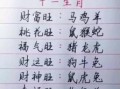 十二生肖
财富旺：马鸡羊
桃花旺：鼠猴蛇
福气旺：猪龙虎
财运旺：狗牛兔
财神旺：鼠虎兔